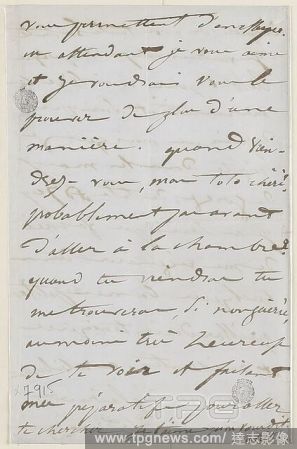 vous permettent d'en
en attendant je vous aime
et je voudrais vous le
prouver de plus d'une
manière. quand vien-
drez-vous, mon toto chéri,
probablement pas avant
d'aller à la chambre.
quand tu viendras tu
me trouveras, si non guérie,
au moins très heureuse
de te voir et faisant
mes préparatifs pour aller
te chercher
7915
TPG
www.tpgnews.com / 達志影像